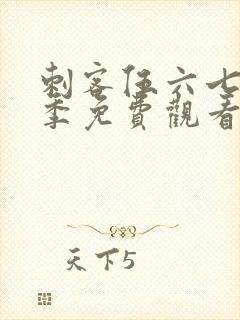 刺客伍六七
季免費觀看
天下5